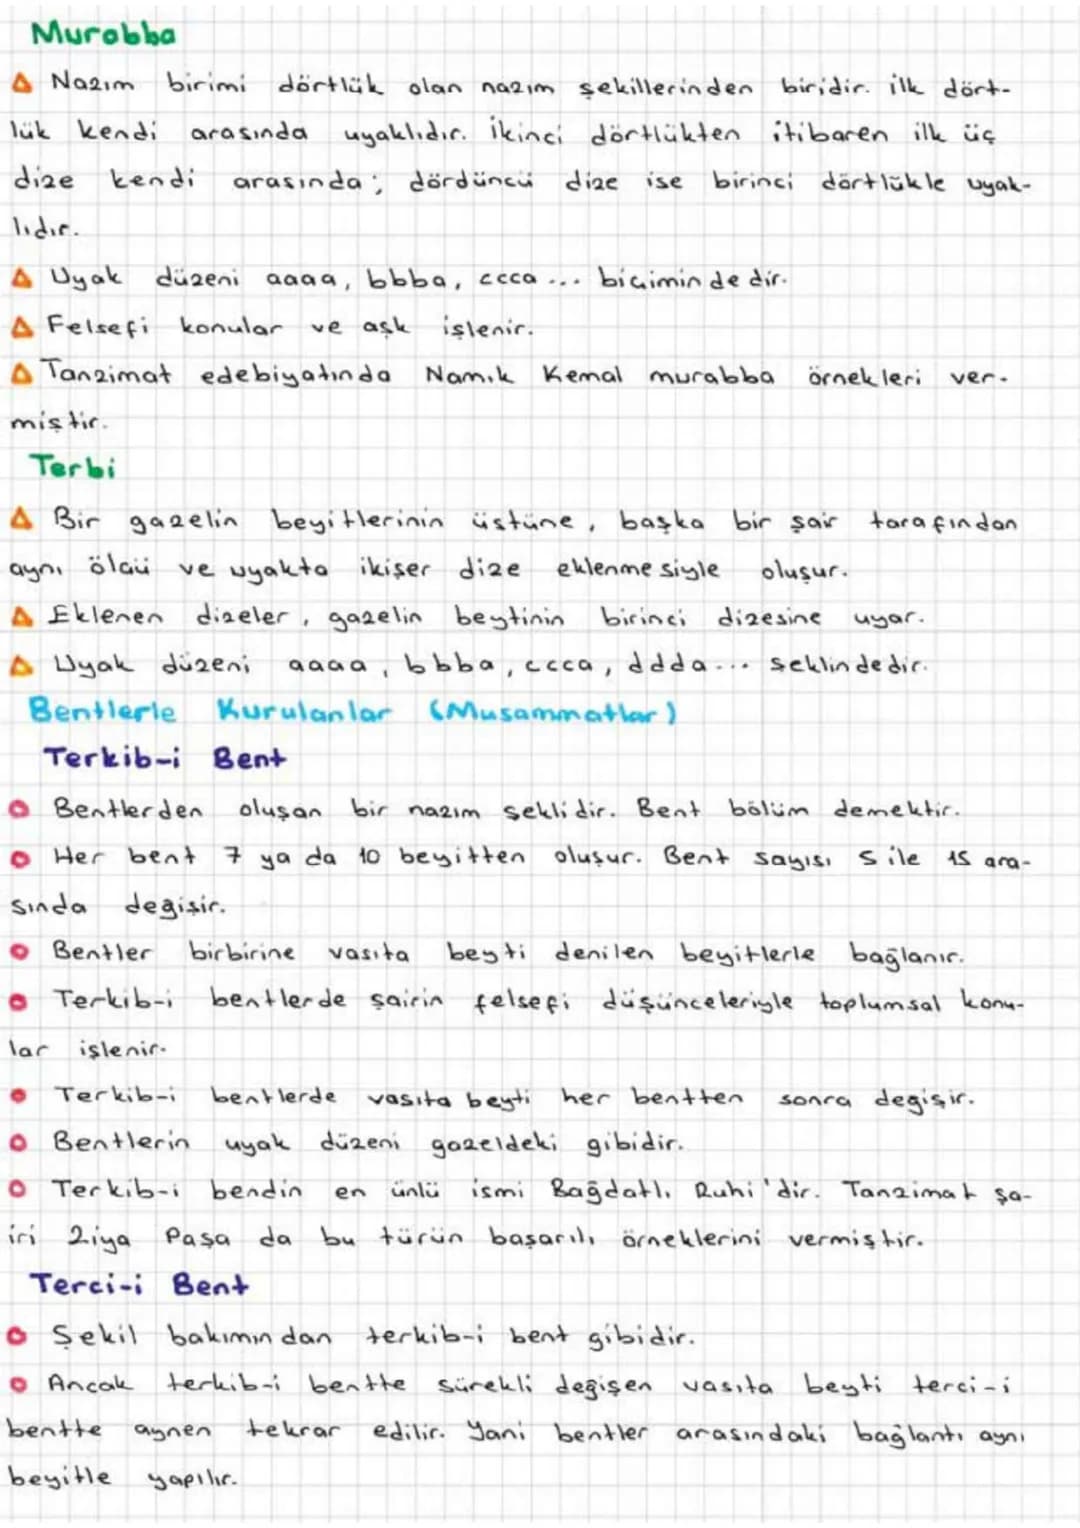 Murabba
Nazım birimi dörtlük olan nazım şekillerinden biridir. ilk dört-
lük kendi arasında uyaklıdır. İkinci dörtlükten itibaren ilk üç
dize kendi arasında; dördüncü dize ise birinci dörtlükle uyak-
lıdır.
Uyak düzeni aaaa, bbba, ccca ... biçimindedir.
Felsefi konular ve aşk işlenir.
Tanzimat edebiyatında Namık Kemal murabba örnekleri ver-
miştir.
Terbi
Bir gazelin beyitlerinin üstüne, başka bir şair tarafından
aynı ölçü ve uyakta ikişer dize eklenmesiyle oluşur.
Eklenen dizeler, gazelin beytinin birinci dizesine uyar.
Uyak düzeni aaaa, bbba, ccca, ddda... şeklindedir.
Bentlerle Kurulanlar (Musammatlar)
Terkib-i Bent
Bentlerden oluşan bir nazım şeklidir. Bent bölüm demektir.
Her bent 7 ya da 10 beyitten oluşur. Bent sayısı 5 ile 15 ara-
sında değişir.
Bentler birbirine vasıta beyti denilen beyitlerle bağlanır.
Terkib-i bentlerde şairin felsefi düşünceleriyle toplumsal konu-
lar işlenir.
Terkib-i bentlerde vasıta beyti her bentten sonra değişir.
Bentlerin uyak düzeni gazeldeki gibidir.
Terkib-i bendin en ünlü ismi Bağdatlı Ruhi'dir. Tanzimat şa-
iri Ziya Paşa da bu türün başarılı örneklerini vermiştir.
Terci-i Bent
Şekil bakımından terkib-i bent gibidir.
Ancak terkib-i bentte sürekli değişen vasıta beyti terci-i
bentte aynen tekrar edilir. Yani bentler arasındaki bağlantı aynı
beyitle yapılır.